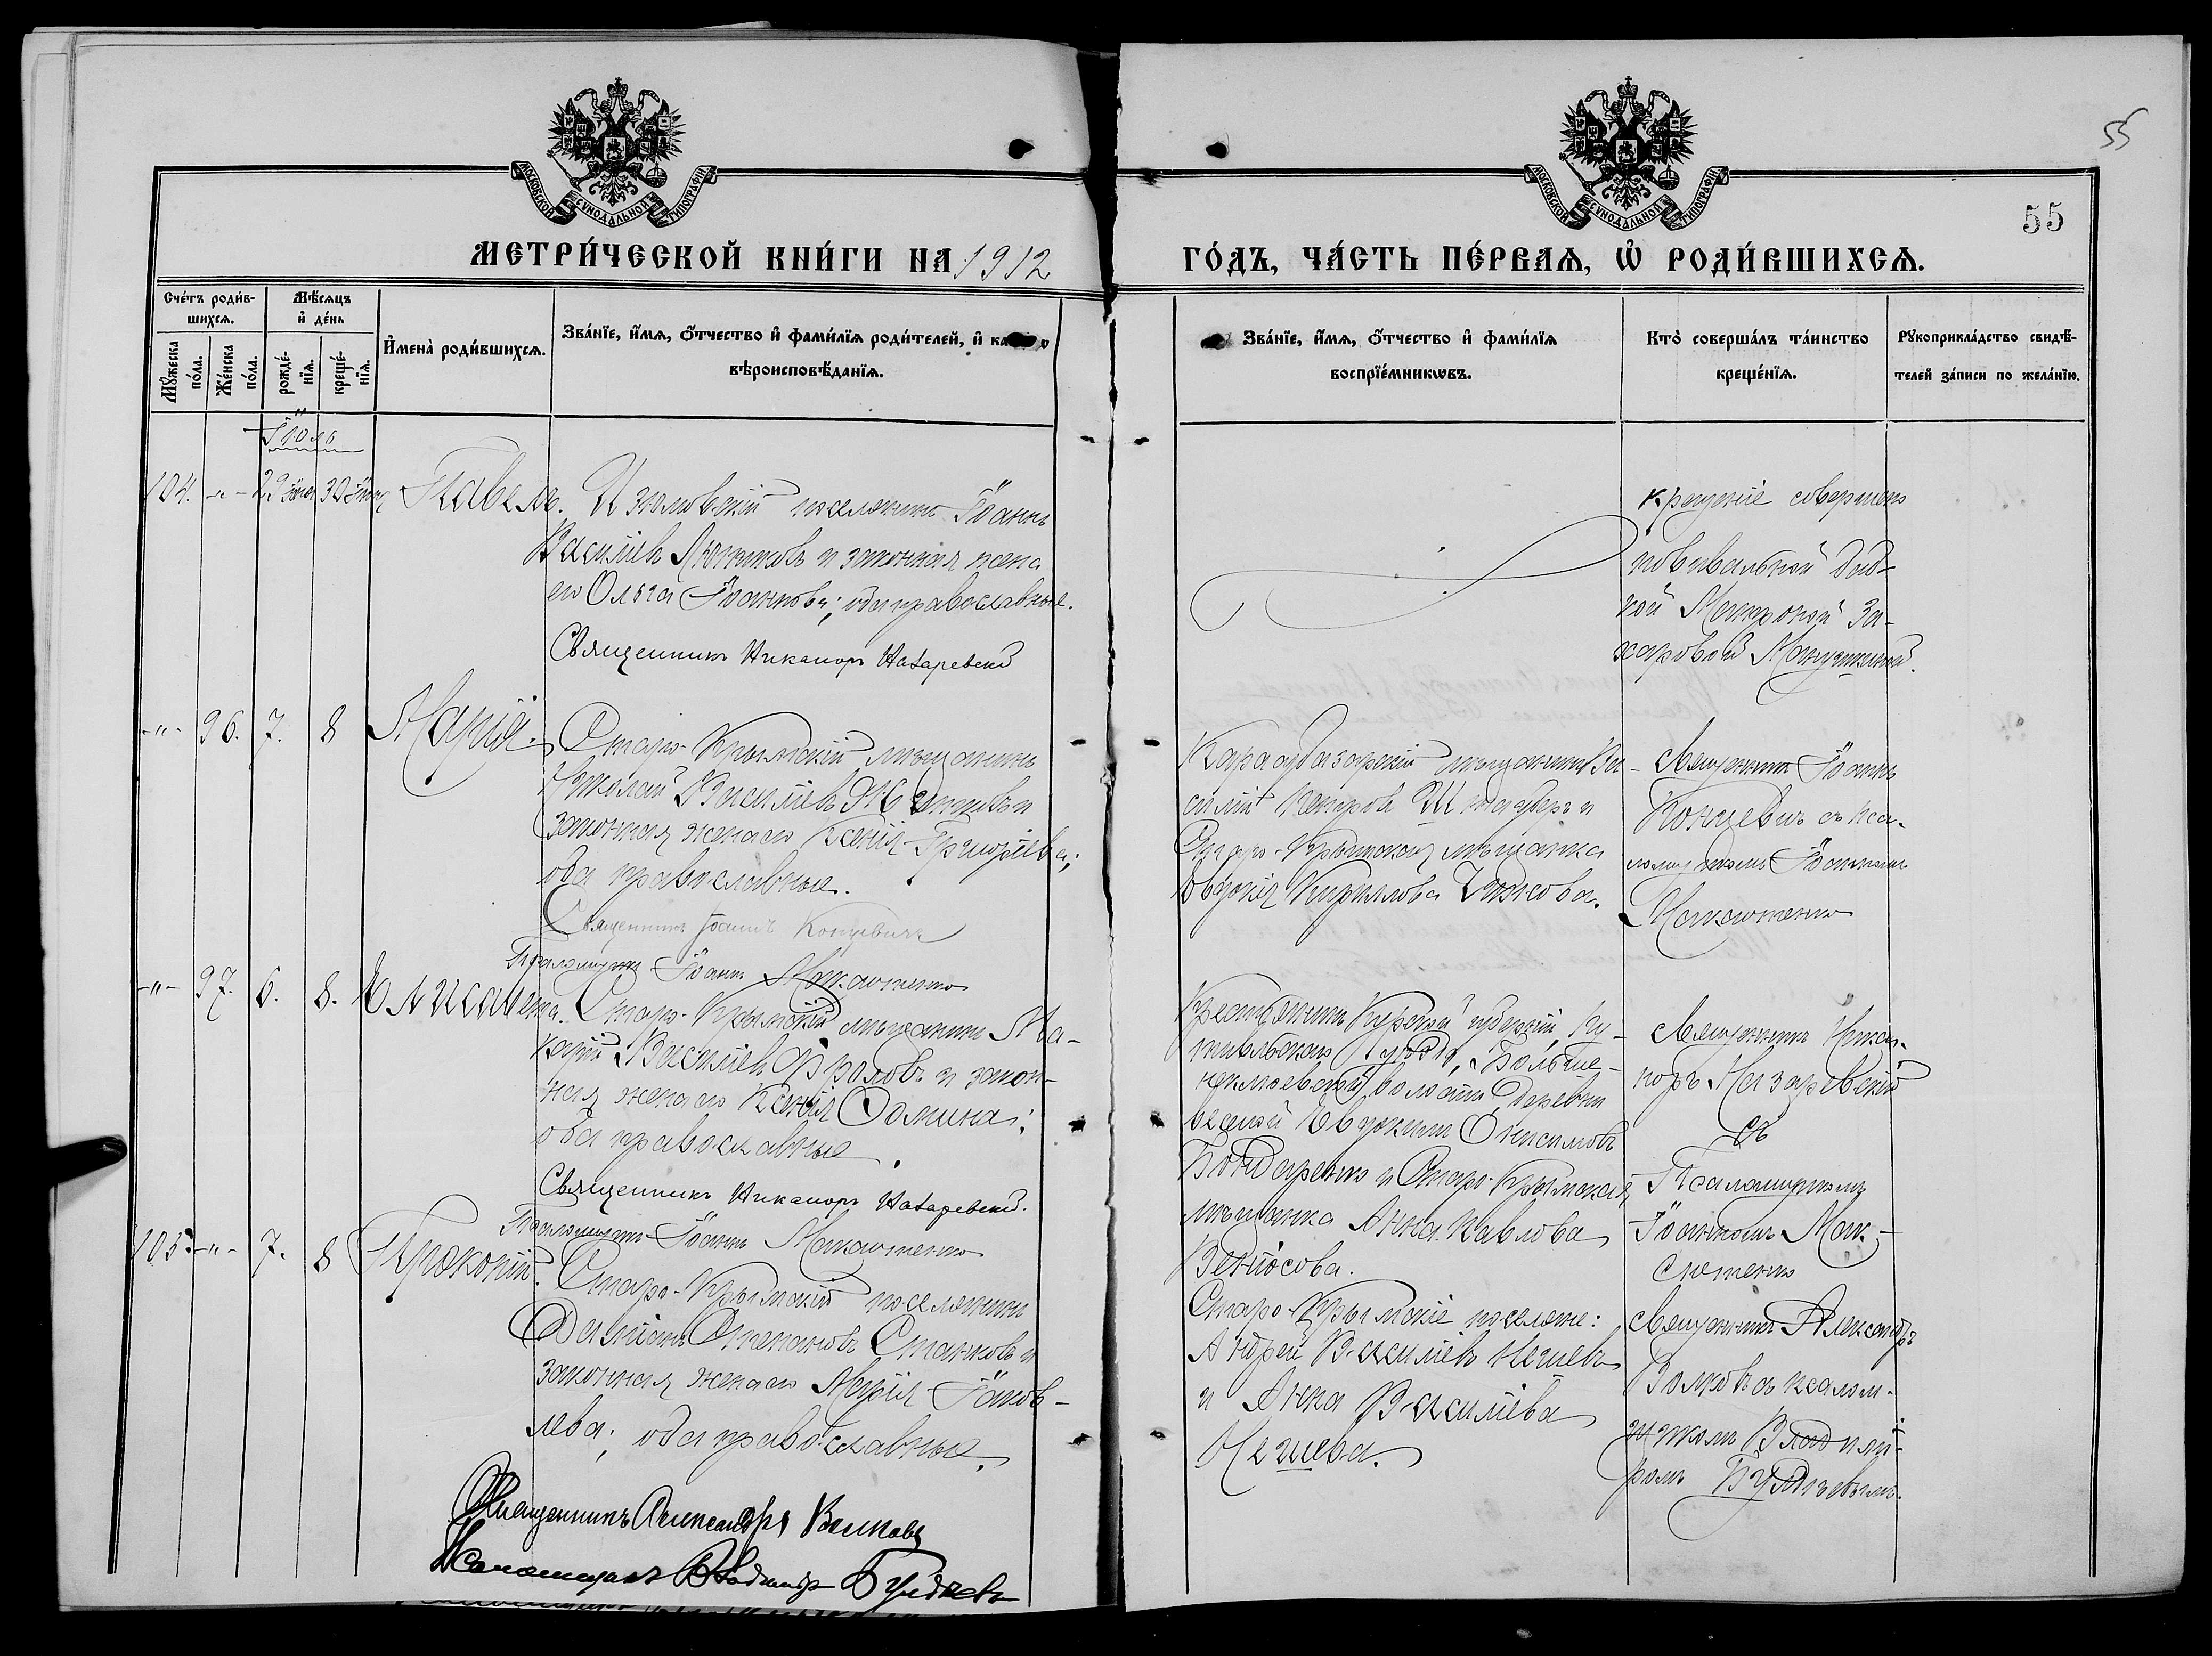 55
МОСКОВСКОЙ СѴНОДАЛЬНОЙ ТИПОГРАФІИ
МОСКОВСКОЙ СѴНОДАЛЬНОЙ ТИПОГРАФІИ
55
МЕТРИ́ЧЕСКОЙ КНИ́ГИ НА 1912
ГО́ДЪ, ЧА́СТЬ ПЕ́РВАѦ, Ѡ҆ РОДИ́ВШИХСѦ.
Сче́тъ роди́в-
шихсѧ.
Мꙋ́жеска по́ла.
Же́нска по́ла.
Мѣ́сѧцъ
и҆ де́нь
рожде́-
нїѧ.
креще́-
нїѧ.
И҆мена̀ роди́вшихсѧ.
Зва́нїе, и҆́мѧ, ѻ҆́тчество и҆ фами́лїѧ роди́телей, и҆
вѣроисповѣ́данїѧ.
Зва́нїе, и҆́мѧ, ѻ҆́тчество и҆ фами́лїѧ
воспрїе́мникѡвъ.
Кто̀ соверша́лъ та́инство
креще́нїѧ.
Рꙋкоприкла́дство свидѣ́-
телей за́писи по жела́нїю.
Іюль
104. -"- 29 30 Павелъ.
Изюмовскій поселянинъ Іоаннъ
Василіевъ и законная жена
его Ольга Іоаннова; оба православные.
Священникъ Никаноръ Назаревскій
Крещеніе совершено
повивальной баб-
кой Матроной За-
харовой
-"- 96. 7. 8 Марія.
Старо-Крымскій мѣщанинъ
Николай Василіевъ и
законная жена его Ксенія Григоріева;
оба православные.
Священникъ Іоаннъ Концевичъ
Псаломщикъ Іоаннъ Максютенко
Карасубазарскій мѣщанинъ Ва-
силій Петровъ и
Старо-Крымская мѣщанка
Евдокія Кириллова
Священникъ Іоаннъ
Концевичъ съ пса-
ломщикомъ Іоанномъ
Максютенко
-"- 97. 6. 8. Елисавета.
Старо-Крымскій мѣщанинъ Ма-
карій Василіевъ Фроловъ и закон-
ная жена его Ксенія Ѳомина;
оба православные.
Священникъ Никаноръ Назаревскій.
Псаломщикъ Іоаннъ Максютенко
Крестьянинъ Курской губерніи, Пу-
тивльскаго уѣзда,
волости, деревни
Евдокимъ Онисимовъ
Бондаренко и Старо-Крымская
мѣщанка Анна Павлова
Священникъ Ника-
норъ Назаревскій
съ
Псаломщикомъ
Іоанномъ Мак-
сютенко
105. -"- 7. 8 Прокопій.
Старо-Крымскій поселянинъ
Даміанъ Степановъ Станковъ и
законная жена его Марія Іаков-
лева; оба православные.
Священникъ Александръ Волковъ
Псаломщикъ Владиміръ
Старо-Крымскіе поселяне:
Андрей Василіевъ
и Анна Василіева
Священникъ Александръ
Волковъ съ псалом-
щикомъ Владимі-
ромъ